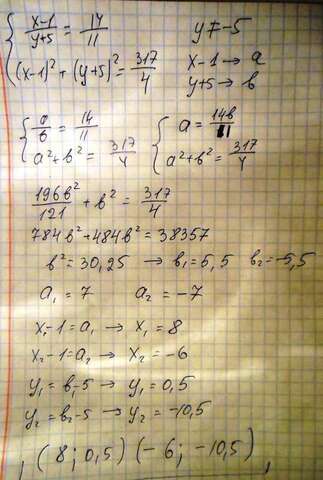 { (x-1)/(y+5) = 14/11    y≠-5
(x-1)² + (y+5)² = 317/4    x-1 → a
y+5 → b
{ a/b = 14/11    { a = 14b/11
a²+b² = 317/4    a²+b² = 317/4
196b²/121 + b² = 317/4
784b²+484b² = 38357
b² = 30,25 → b₁=5,5  b₂=-5,5
a₁ = 7    a₂ = -7
x₁-1=a₁ → x₁ = 8
x₂-1=a₂ → x₂ = -6
y₁ = b₁-5 → y₁ = 0,5
y₂ = b₂-5 → y₂ = -10,5
, (8; 0,5) (-6; -10,5) ,